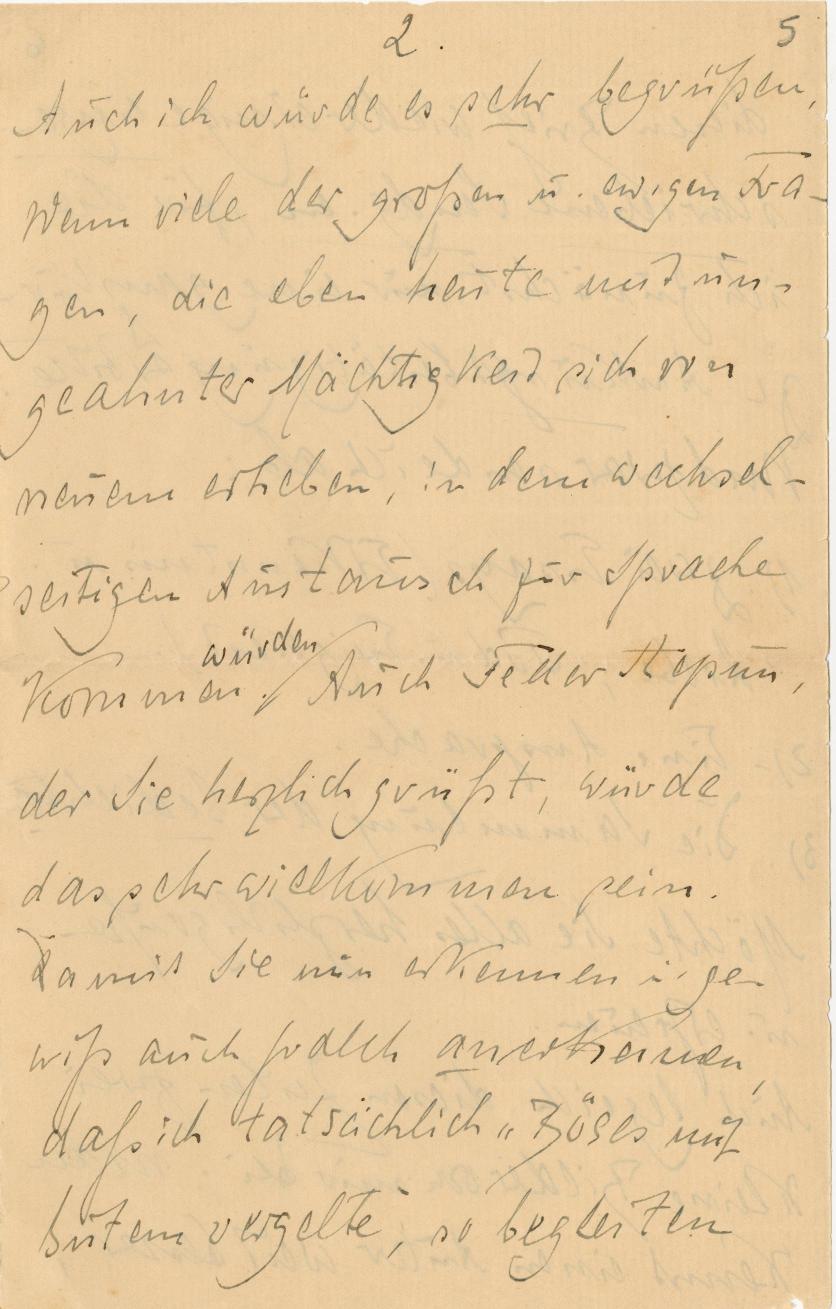 2. 5
Auch ich würde es sehr begrüßen,
wenn viele der großen u. ewigen Fra-
gen, die eben heute mit un-
geahnter Mächtigkeit sich von
neuem erheben, in dem wechsel-
seitigen Austausch zur Sprache
würden
kommen. / Auch Fedor Stepun,
der Sie herzlich grüßt, würde
das sehr willkommen sein.
Damit Sie nun erkennen u. ge-
wiß auch anerkennen,
daß ich tatsächlich „Böses mit
Gutem vergelte, so begleiten